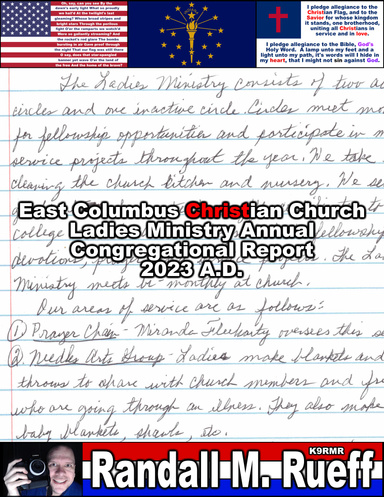 Oh, say, can you see By the
dawn's early light What so proudly
we hail'd At the twilight's last
gleaming? Whose broad stripes and
bright stars Through the perilous
fight O'er the ramparts we watch'd
Were so gallantly streaming? And
the rocket's red glare The bombs
bursting in air Gave proof through
the night That our flag was still there
O say, does that star-spangled
banner yet wave O'er the land of
the free And the home of the brave?
I pledge allegiance to the
Christian Flag, and to the
Savior for whose kingdom
it stands, one brotherhood,
uniting all Christians in
service and in love.
I pledge allegiance to the Bible, God's
Holy Word. A lamp unto my feet and a
light unto my path, it's words will I hide in
my heart, that I might not sin against God.
The Ladies Ministry consists of two ac
circles and one inactive circle. Circles meet mo
for fellowship opportunities and participate in m
service projects throughout the year. We take
cleaning the church kitchen and nursery. We se
East Columbus Christian Church
Ladies Ministry Annual
Congregational Report
2023 A.D.
college
fellowship
devotions,
The La
Ministry meets bi-monthly at church.
Our areas of service are as follows:
① Prayer Chain - Miranda oversees this s
② Needles Arts Group - Ladies make blankets and
throws to share with church members and fr
who are going through an illness. They also make
baby blankets, shawls, etc.
K9RMR
Randall M. Rueff